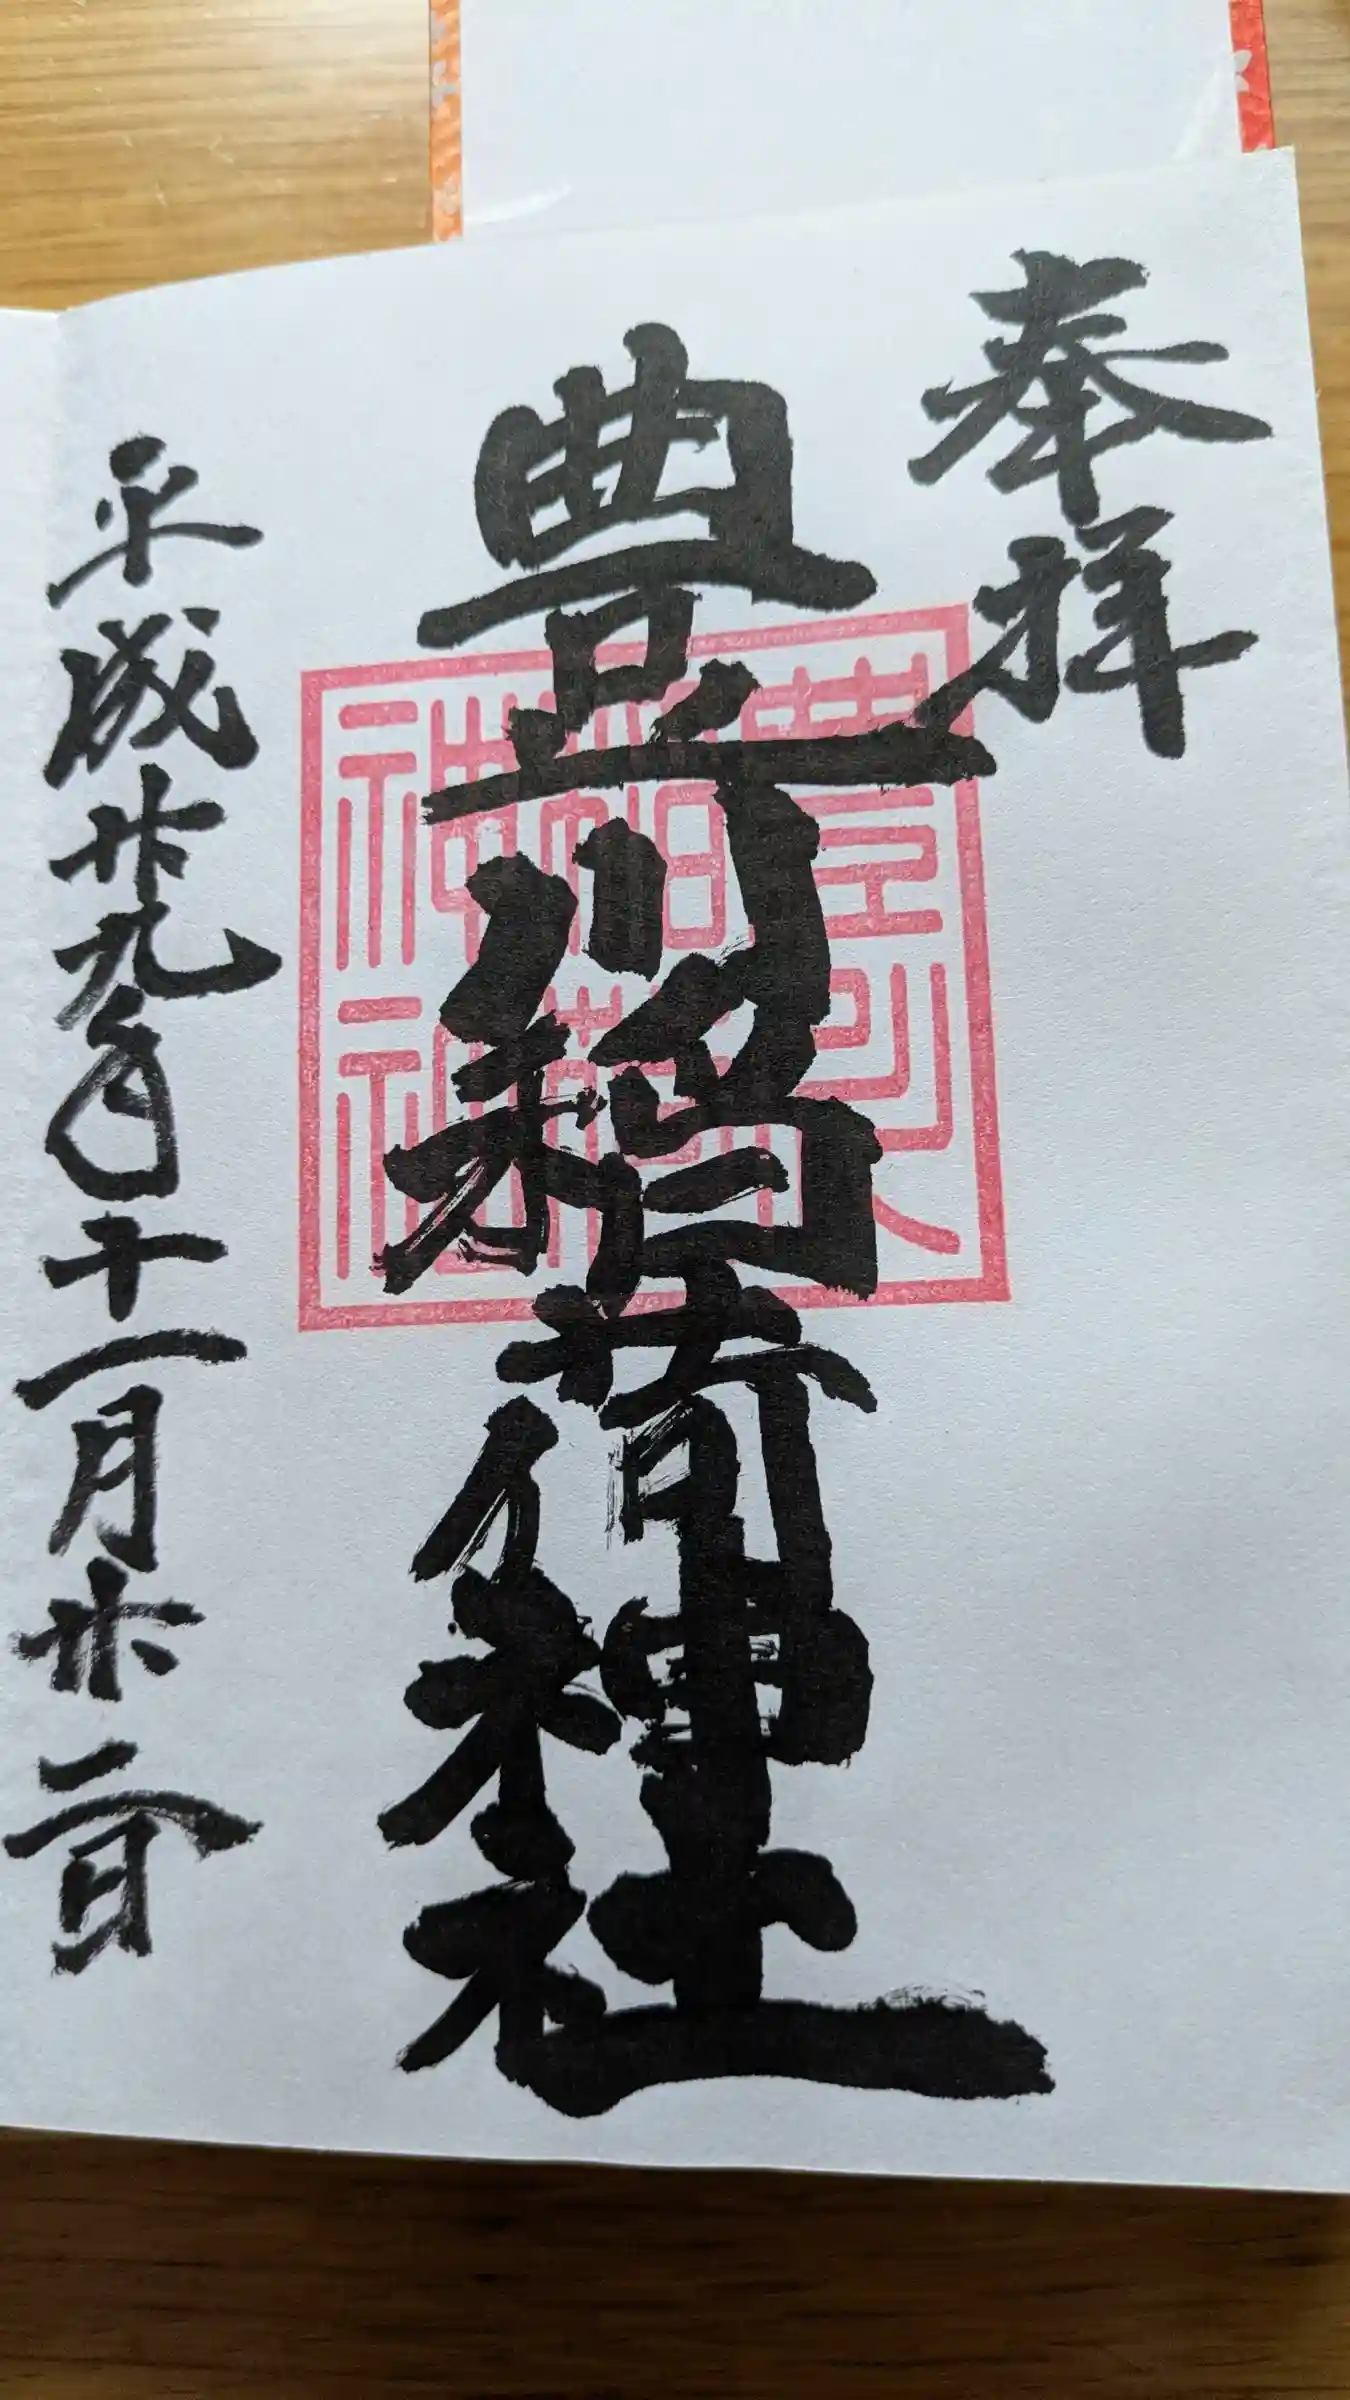 奉拝
豊川稲荷神社
平成廿九年十一月廿二日
豊川
稲荷
神社